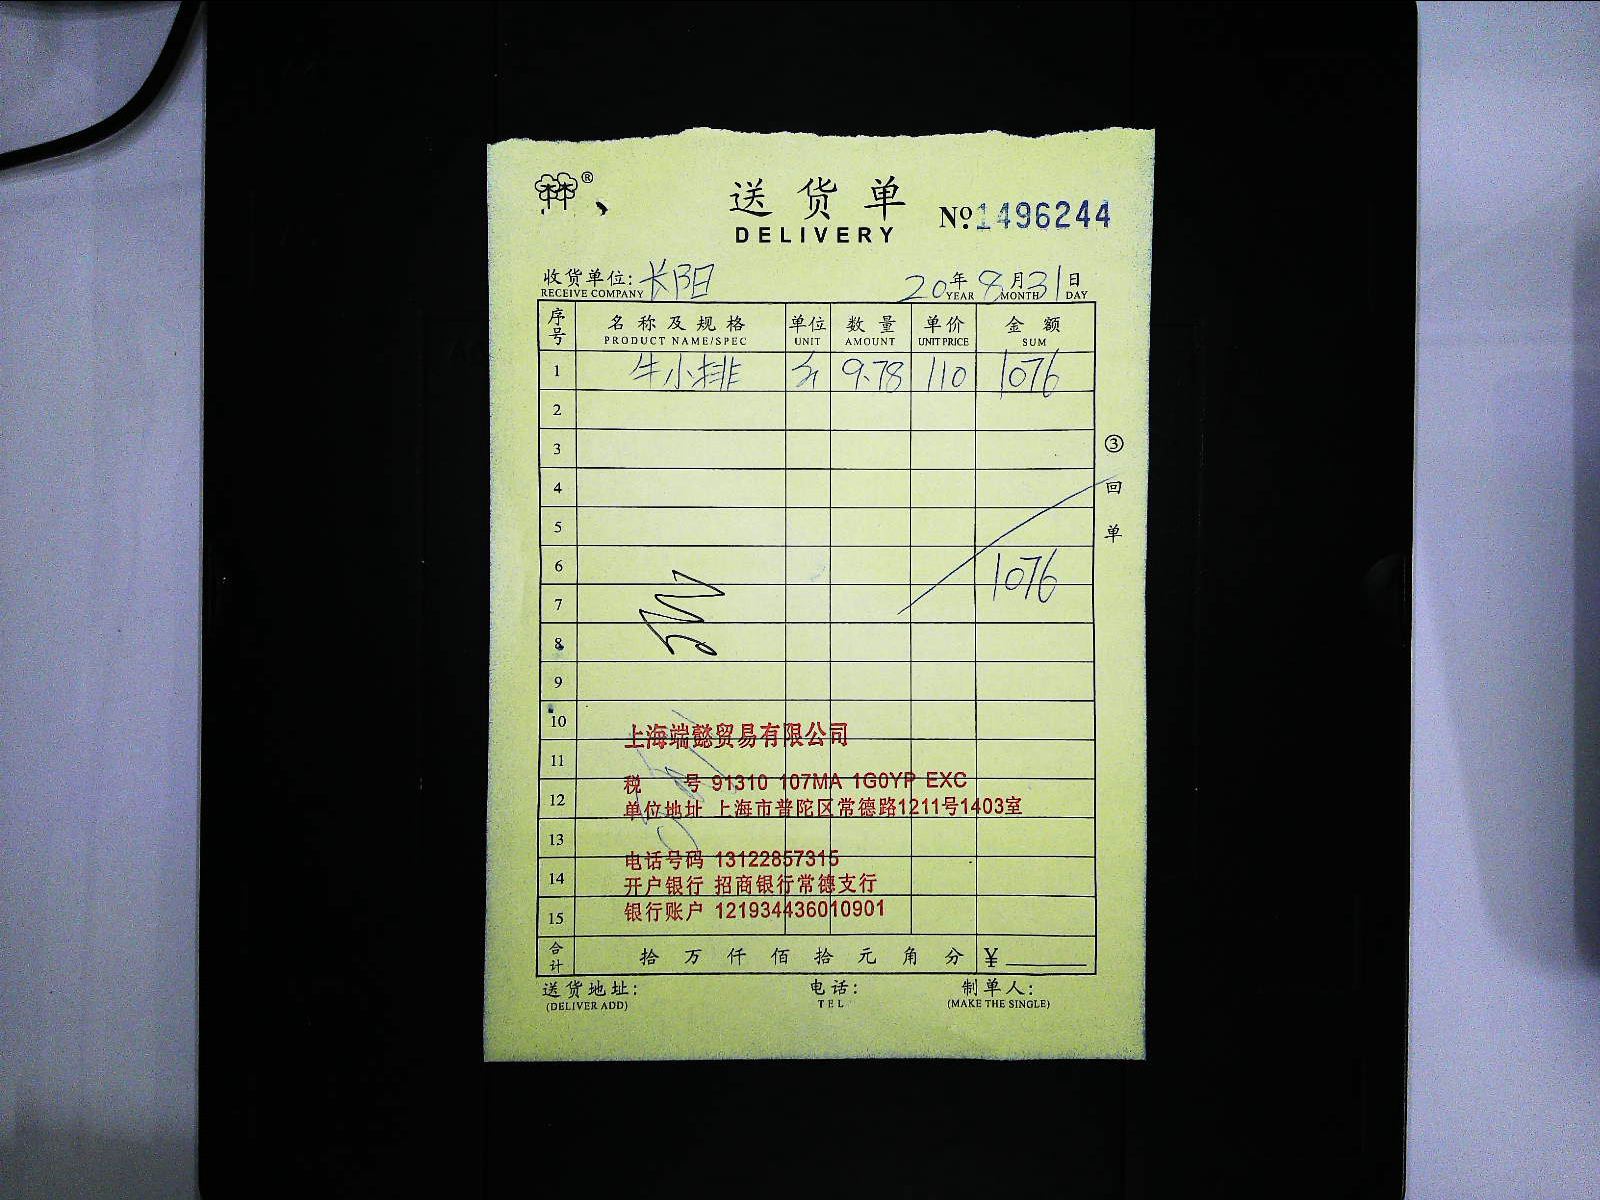 ® 送货单
DELIVERY
№ 1496244
收货单位: 长阳 20年8月31日
RECEIVE COMPANY YEAR MONTH DAY
序号 名称及规格 单位 数量 单价 金额
PRODUCT NAME/SPEC UNIT AMOUNT UNIT PRICE SUM
1 牛小排 9.78 110 1076
2
3
③回单
4
5
6 1076
7
8
9
10
上海端懿贸易有限公司
11
税 号 91310 107MA 1G0YP EXC
12
单位地址 上海市普陀区常德路1211号1403室
13
电话号码 13122857315
14
开户银行 招商银行常德支行
15
银行账户 121934436010901
合计 拾 万 仟 佰 拾 元 角 分 ¥
送货地址: 电话: 制单人:
(DELIVER ADD) TEL (MAKE THE SINGLE)